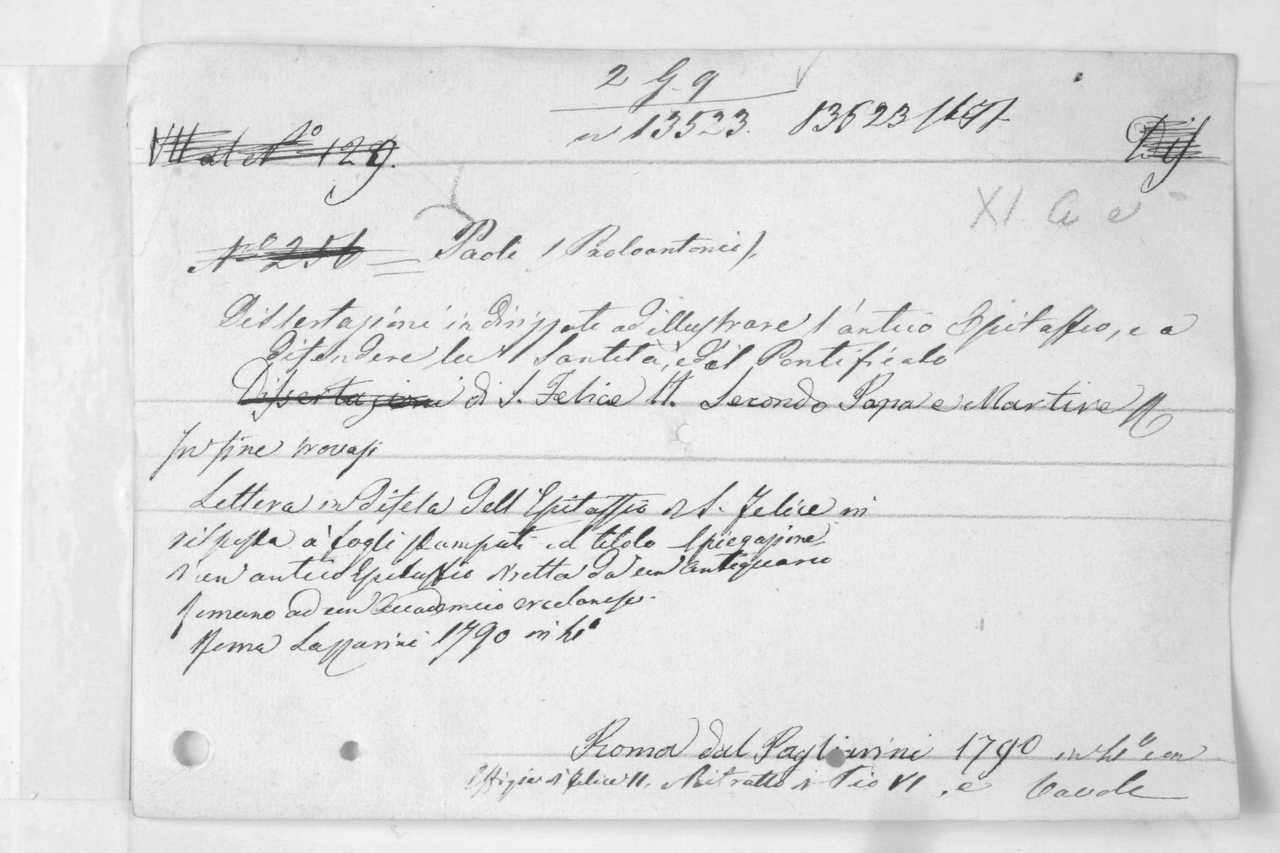 2 G. 9
n 13523. 13523
VII al No 129.
XI. A e
No 256 = Paoli (Paoloantonio),
Dissertazioni indirizzate ad illustrare l'antico Epitaffio, e a
difendere la Santità, ed il Pontificato
Dissertazioni di S. Felice II. Secondo Papa e Martire
In fine trovasi
Lettera in difesa dell'Epitaffio di S. Felice in
risposta a' fogli stampati col titolo Spiegazione
d'un antico Epitaffio diretta da un antiquario
romano ad un Accademico ercolanese.
Roma Lazzarini 1790 in 4o
Roma dal Pagliarini 1790 in 4o con
Effigie di Felice II. Ritratto di Pio VI, e tavole